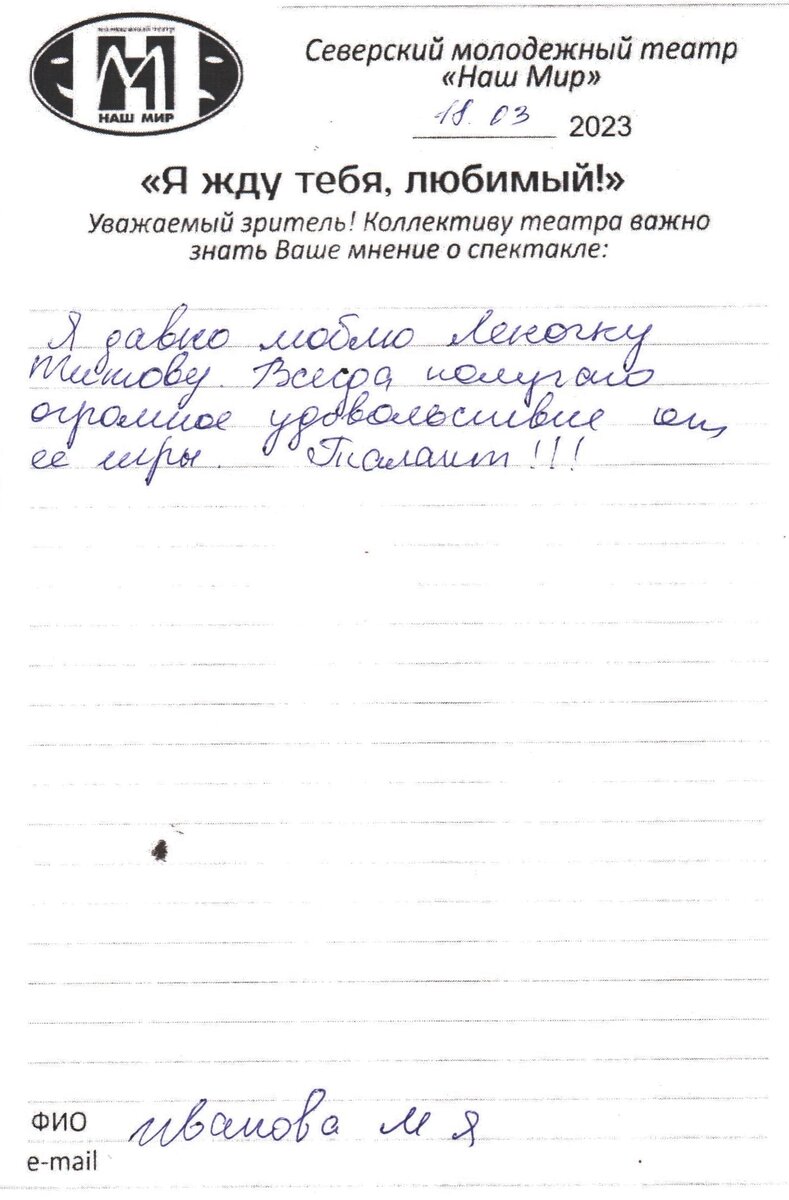 молодежный театр
НАШ МИР
Северский молодежный театр
«Наш Мир»
18.03 2023
«Я жду тебя, любимый!»
Уважаемый зритель! Коллективу театра важно
знать Ваше мнение о спектакле:
Я давно люблю Леночку
Титову. Всегда получаю
огромное удовольствие от
ее игры. Талант!!!
ФИО Иванова М Я
e-mail